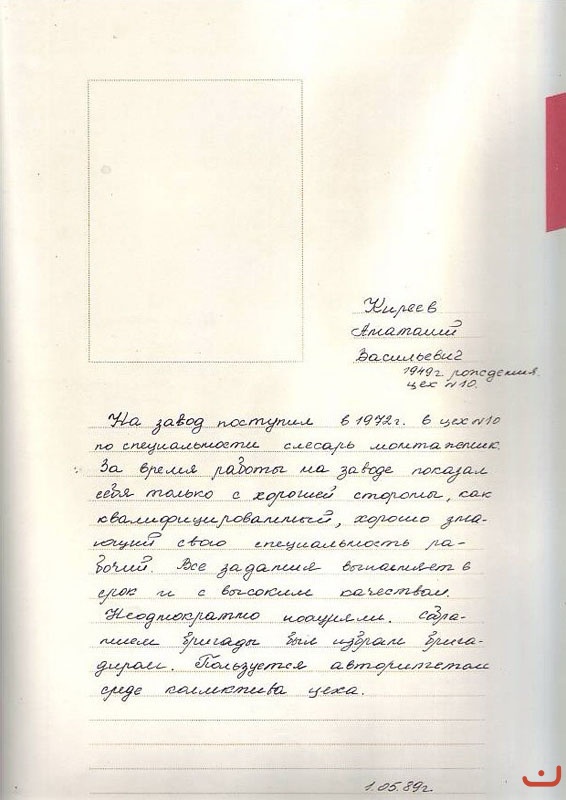 Киреев
Анатолий
Васильевич
1949г. рождения.
цех №10.
На завод поступил в 1972г. в цех №10
по специальности слесарь монтажник.
За время работы на заводе показал
себя только с хорошей стороны, как
квалифицированный, хорошо зна-
ющий свою специальность ра-
бочий. Все задания выполняет в
срок и с высоким качеством.
Неоднократно поощрялся. Собра-
нием бригады был избран брига-
диром. Пользуется авторитетом
среде коллектива цеха.
1.05.89г.